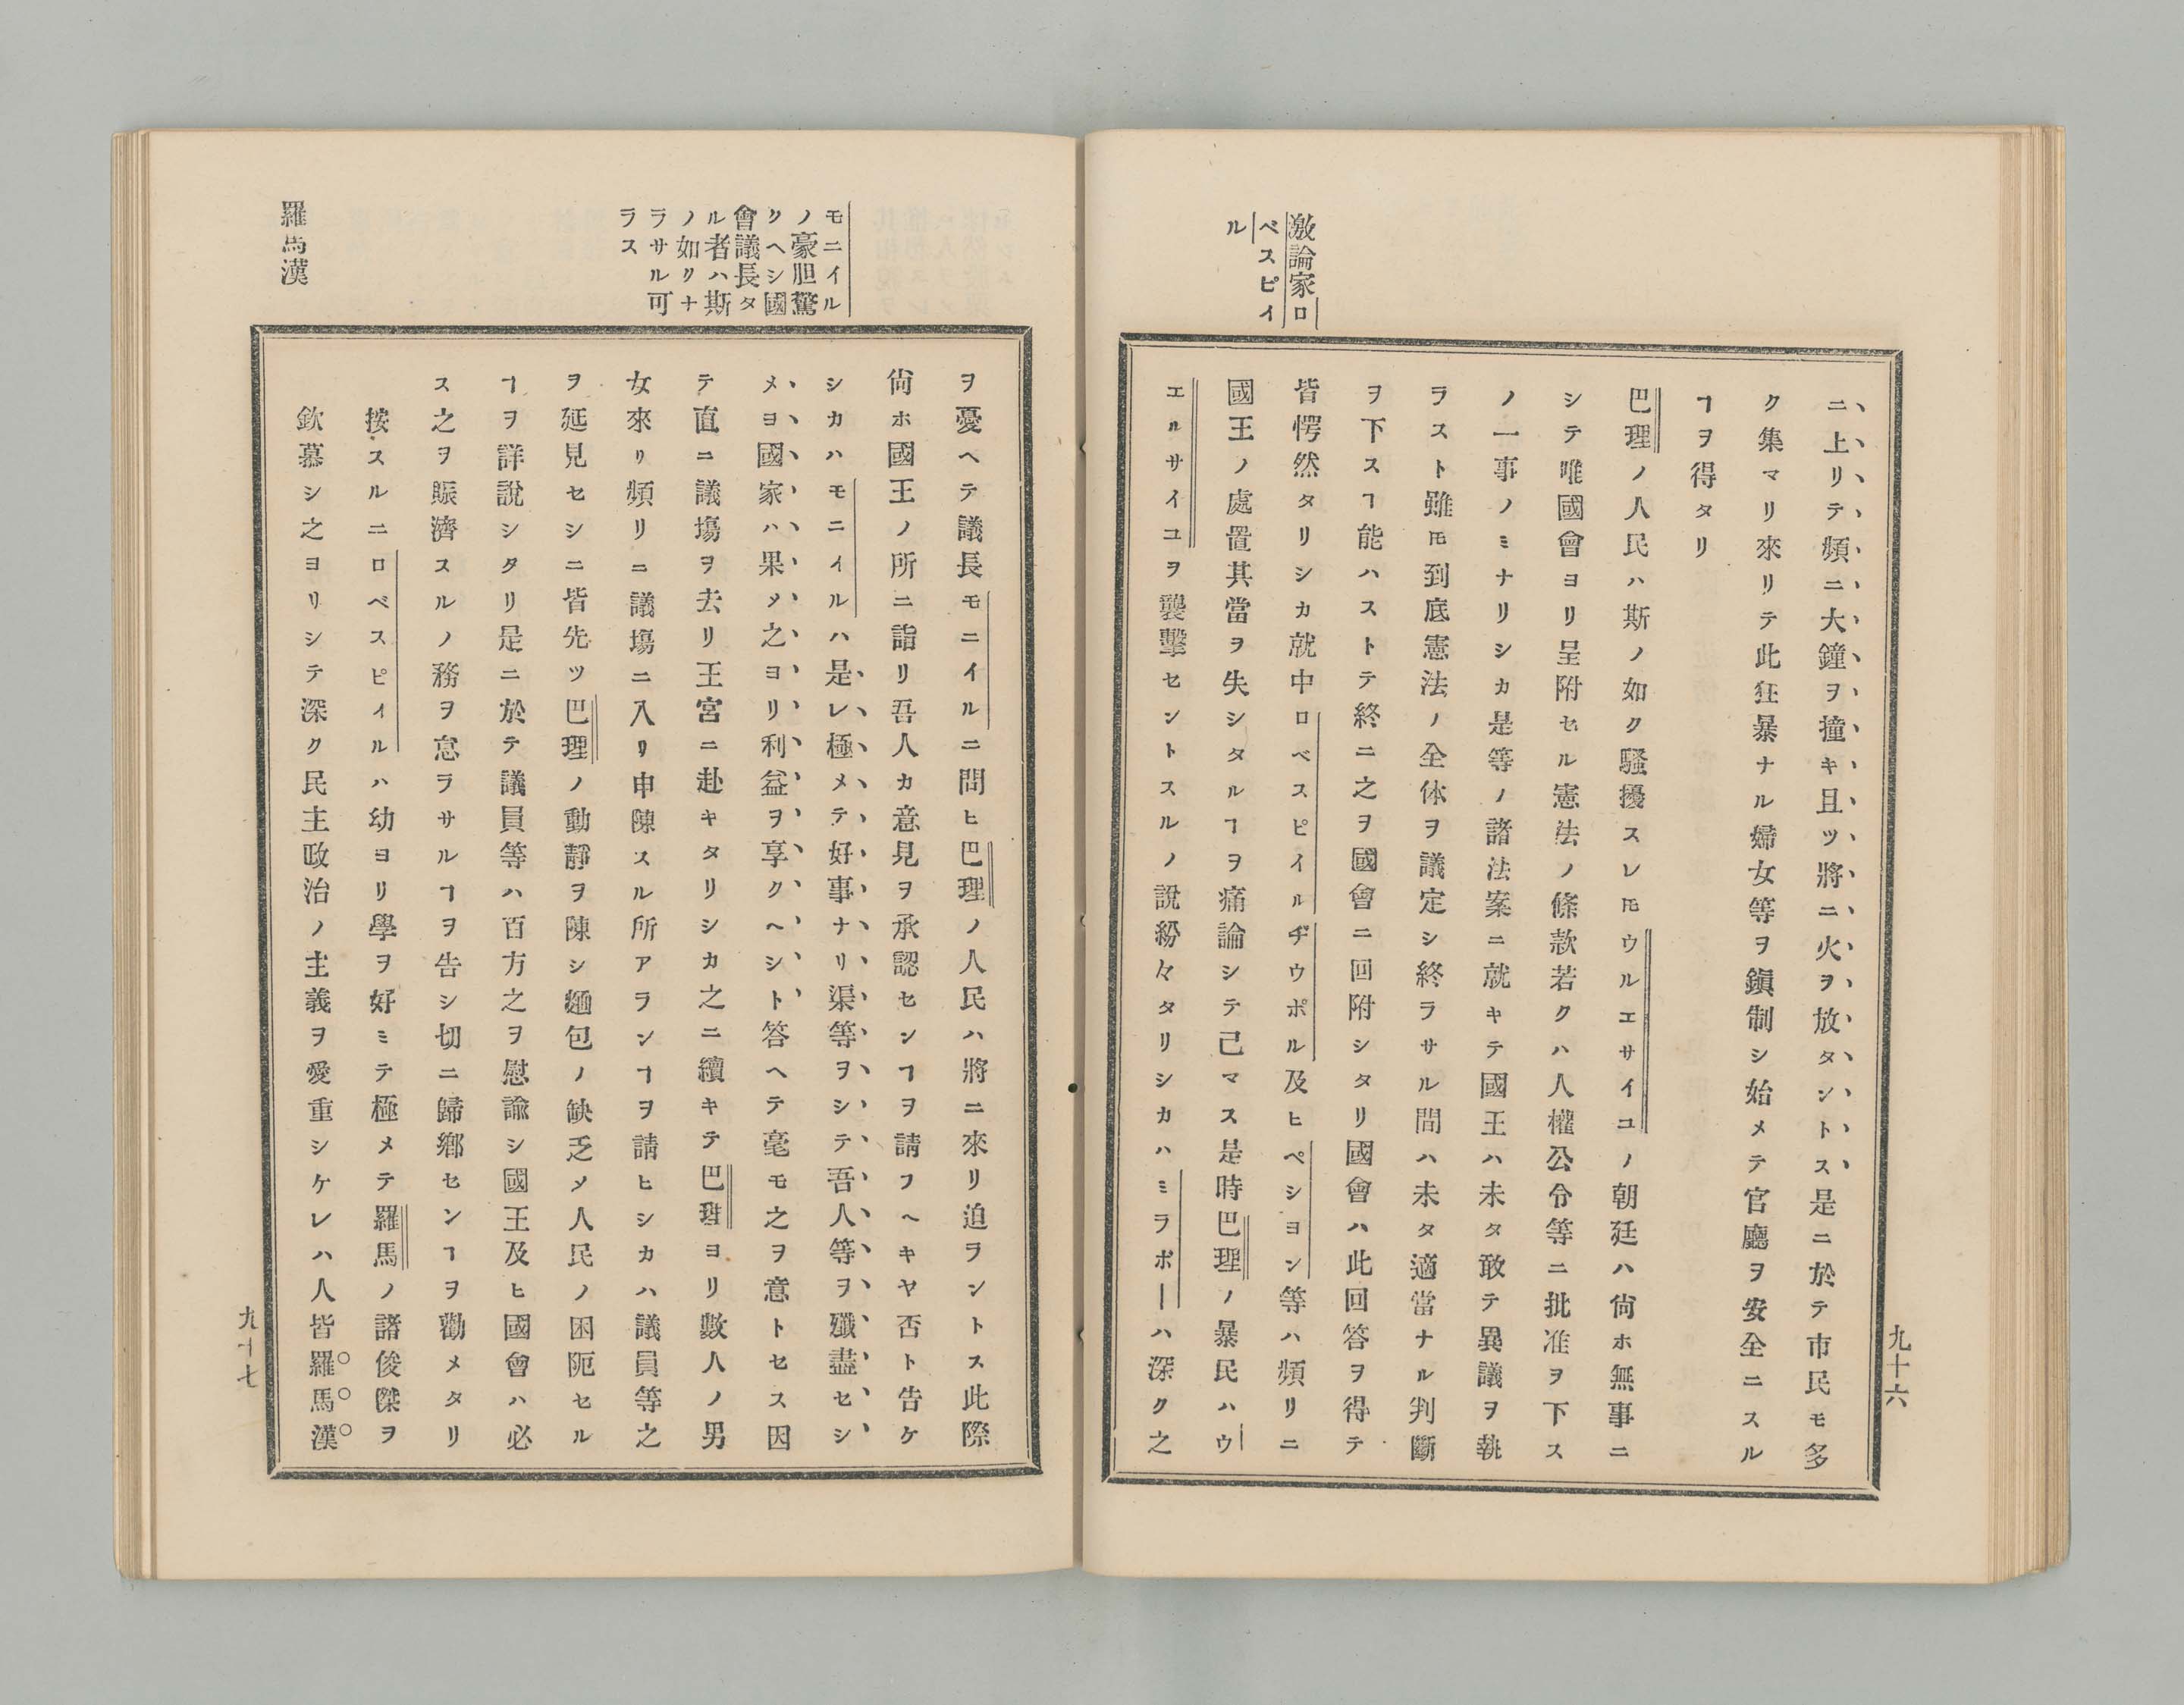 激論家ロ
ベスピイ
ル
ニ上リテ頻ニ大鐘ヲ撞キ且ツ將ニ火ヲ放タントス是ニ於テ市民モ多
ク集マリ來リテ此狂暴ナル婦女等ヲ鎭制シ始メテ官廳ヲ安全ニスル
ヿヲ得タリ
巴理ノ人民ハ斯ノ如ク騷擾スレ𪜈ウルエサイユノ朝廷ハ尙ホ無事ニ
シテ唯國會ヨリ呈附セル憲法ノ條款若クハ人權公令等ニ批准ヲ下ス
ノ一事ノミナリシカ是等ノ諸法案ニ就キテ國王ハ未タ敢テ異議ヲ執
ラスト雖𪜈到底憲法ノ全体ヲ議定シ終ラサル間ハ未タ適當ナル判斷
ヲ下スヿ能ハストテ終ニ之ヲ國會ニ回附シタリ國會ハ此回答ヲ得テ
皆愕然タリシカ就中ロベスピイルヂウポル及ヒペシヨン等ハ頻リニ
國王ノ處置其當ヲ失シタルヿヲ痛論シテ己マス是時巴理ノ暴民ハウ
エルサイユヲ襲擊セントスルノ說紛々タリシカハミラボーハ深ク之
九十六
モニイル
ノ豪胆驚
クヘシ國
會議長タ
ル者ハ斯
ノ如クナ
ラサル可
ラス
羅馬漢
ヲ憂ヘテ議長モニイルニ問ヒ巴理ノ人民ハ將ニ來リ迫ラントス此際
尙ホ國王ノ所ニ詣リ吾人カ意見ヲ承認センヿヲ請フヘキヤ否ト告ケ
シカハモニイルハ是レ極メテ好事ナリ渠等ヲシテ吾人等ヲ殲盡セシ
メヨ國家ハ果メ之ヨリ利益ヲ享クヘシト答ヘテ毫モ之ヲ意トセス因
テ直ニ議塲ヲ去リ王宮ニ赴キタリシカ之ニ續キテ巴理ヨリ數人ノ男
女來リ頻リニ議塲ニ入リ申陳スル所アランヿヲ請ヒシカハ議員等之
ヲ延見セシニ皆先ツ巴理ノ動靜ヲ陳シ麵包ノ缺乏メ人民ノ困阨セル
ヿヲ詳說シタリ是ニ於テ議員等ハ百方之ヲ慰諭シ國王及ヒ國會ハ必
ス之ヲ賑濟スルノ務ヲ怠ラサルヿヲ告シ切ニ歸鄕センヿヲ勸メタリ
按スルニロベスピイルハ幼ヨリ學ヲ好ミテ極メテ羅馬ノ諸俊傑ヲ
欽慕シ之ヨリシテ深ク民主政治ノ主義ヲ愛重シケレハ人皆羅馬漢
九十七